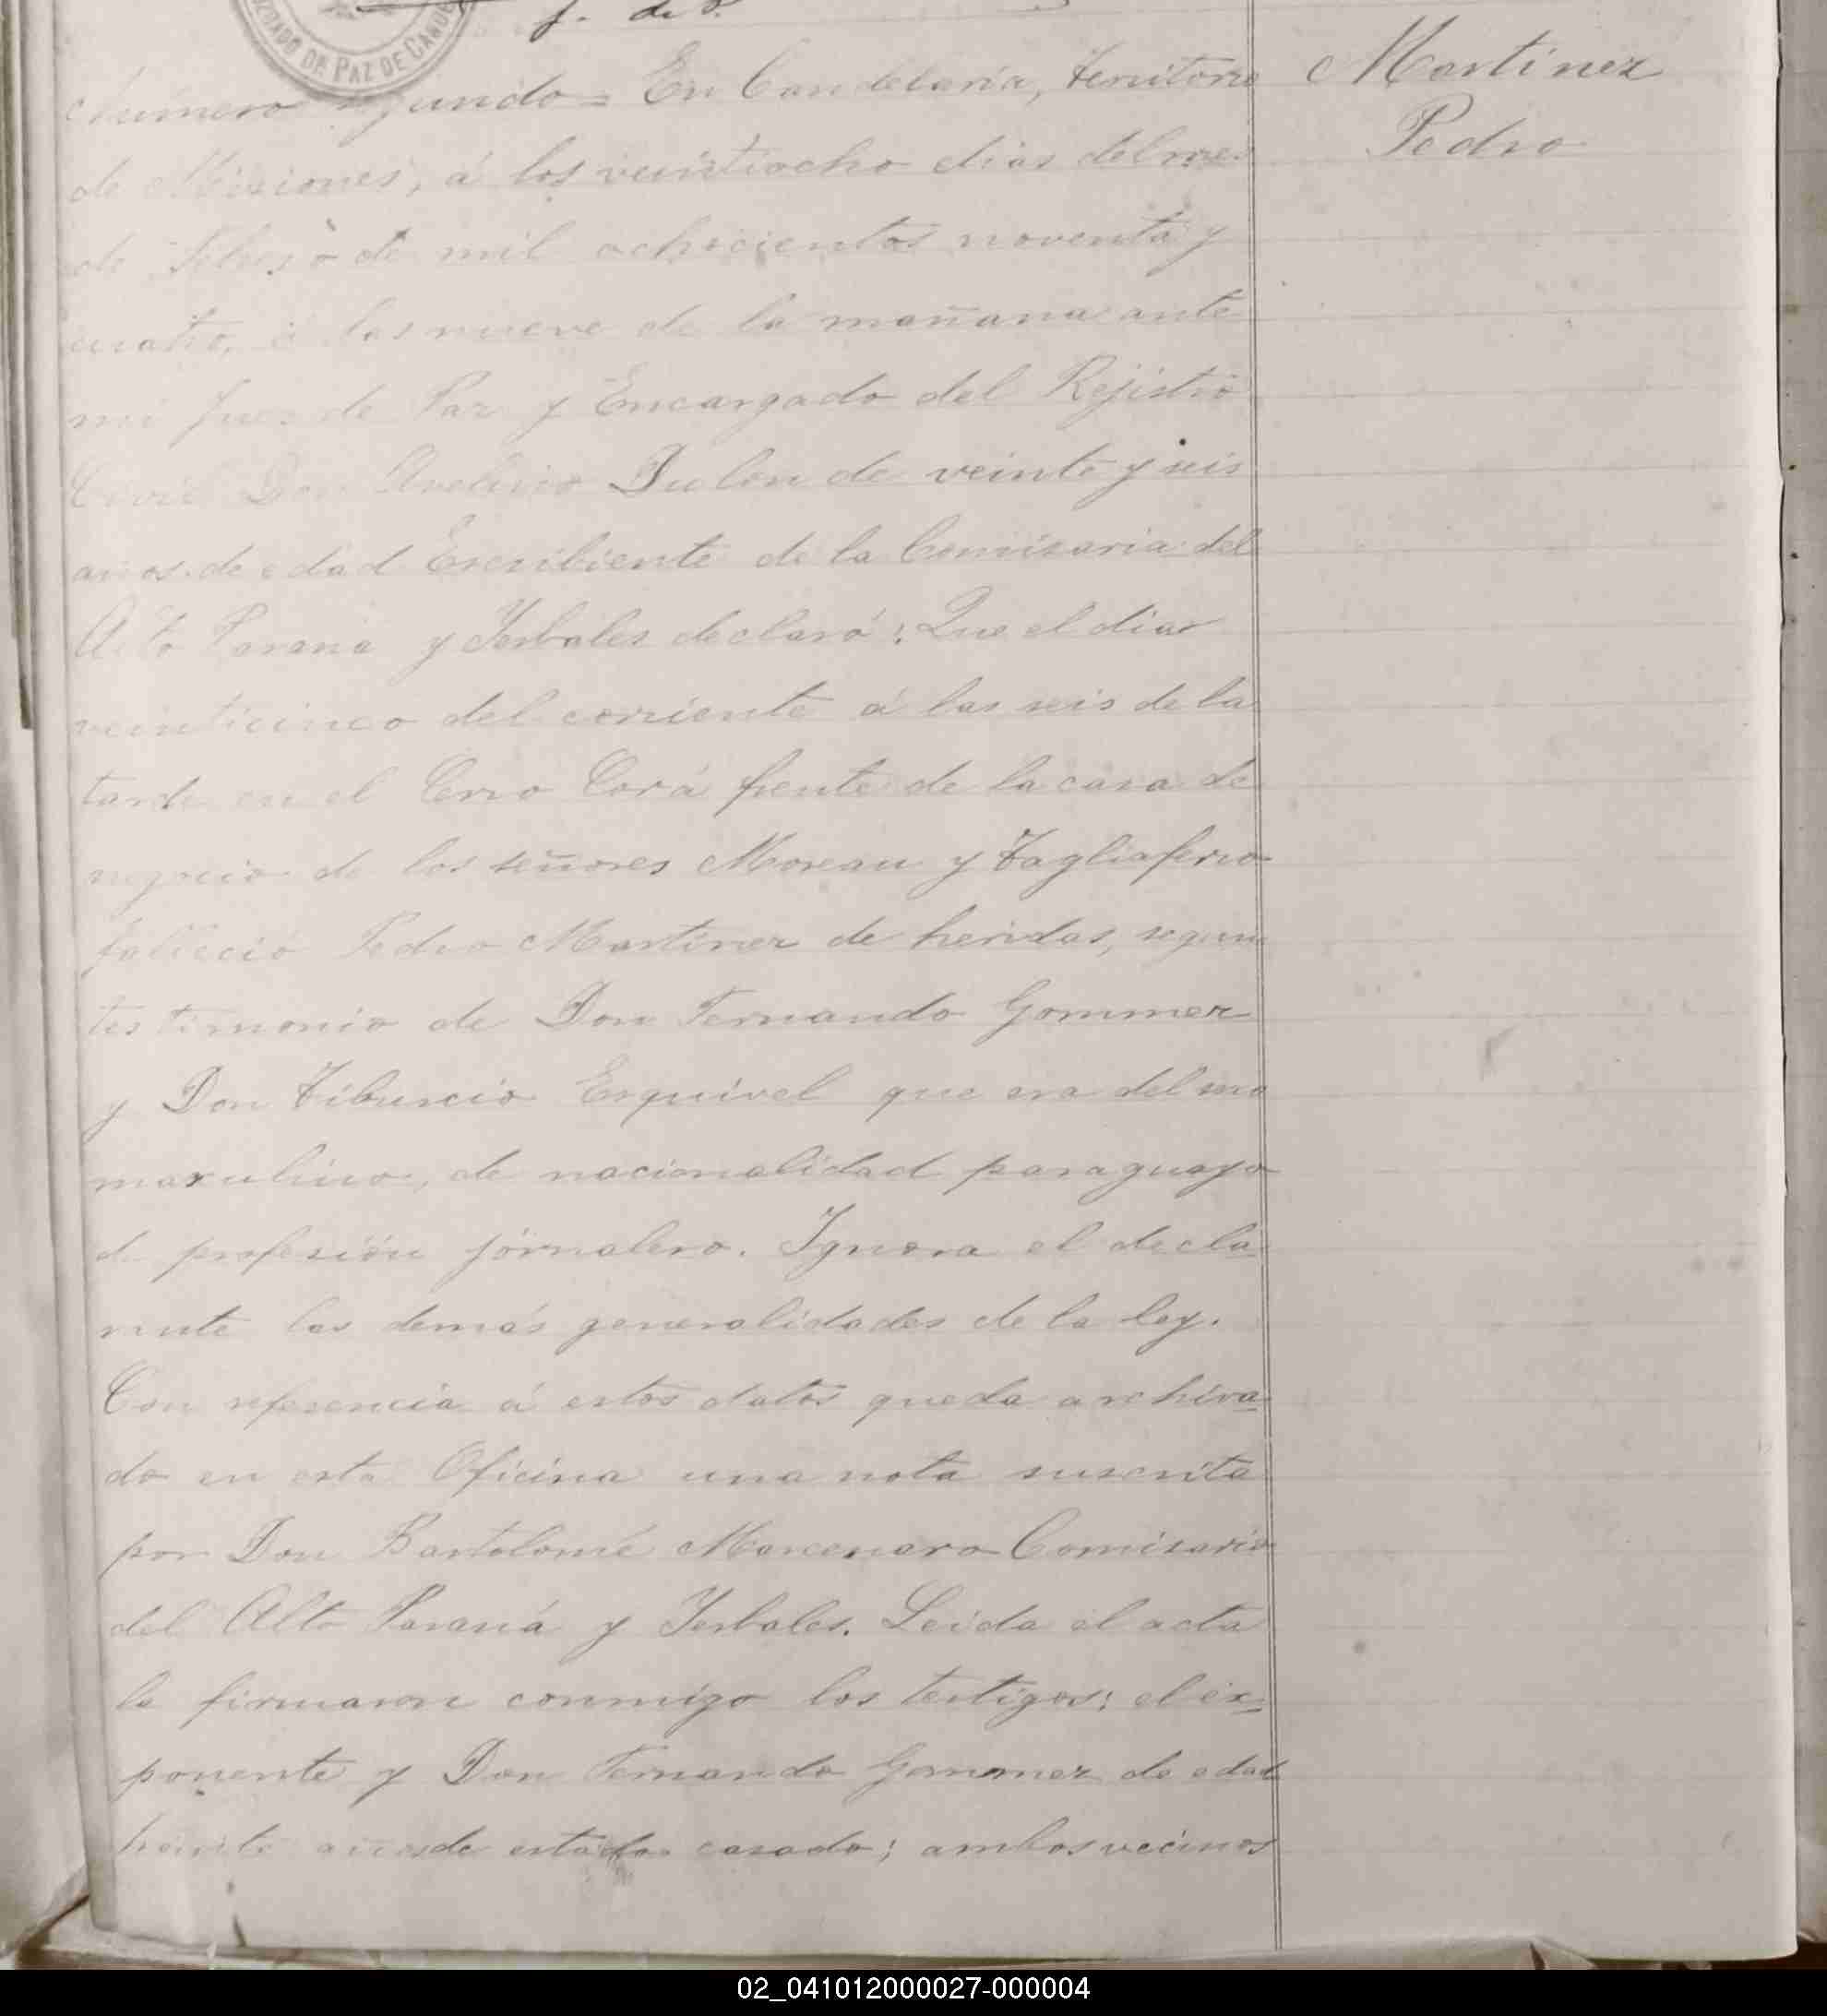 JUZGADO DE PAZ DE CANDE
J. de P.
Martinez
Pedro
Número segundo = En Candelaria, Territorio
de Misiones, á los veintiocho dias del mes
de Febrero de mil ochocientos noventa y
cuatro, á las nueve de la mañana ante
mi Juez de Paz y Encargado del Rejistro
Civil Don Avelino de veinte y seis
años de edad Escribiente de la Comisaria del
Alto Parana y Yerbales declaró: Que el dia
veinticinco del corriente á las seis de la
tarde en el Cerro Corá frente de la casa de
negocio de los señores Moreau y Tagliaferro
falleció Pedro Martinez de heridas, segun
testimonio de Don Fernando Gommez
y Don Tiburcio Esquivel que era del sexo
masculino, de nacionalidad paraguayo
de profesión jórnalero. Ignora el decla
rante las demás generalidades de la ley.
Con referencia á estos datos queda archiva
do en esta Oficina una nota suscrita
por Don Bartolomé Marcenaro Comisario
del Alto Paraná y Yerbales. Leida el acta
la firmaron conmigo los testigos: el ex=
ponente y Don Fernando Gommez de edad
treinta años de estado casado; ambos vecinos
02_041012000027-000004